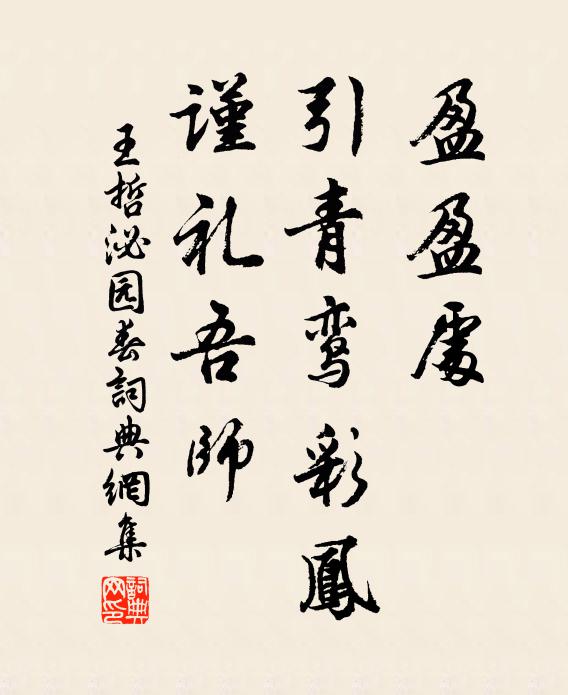 盈盈處
引青鸾彩鳳
謹礼吾師
王哲泌园春詞典網集
詞典网印